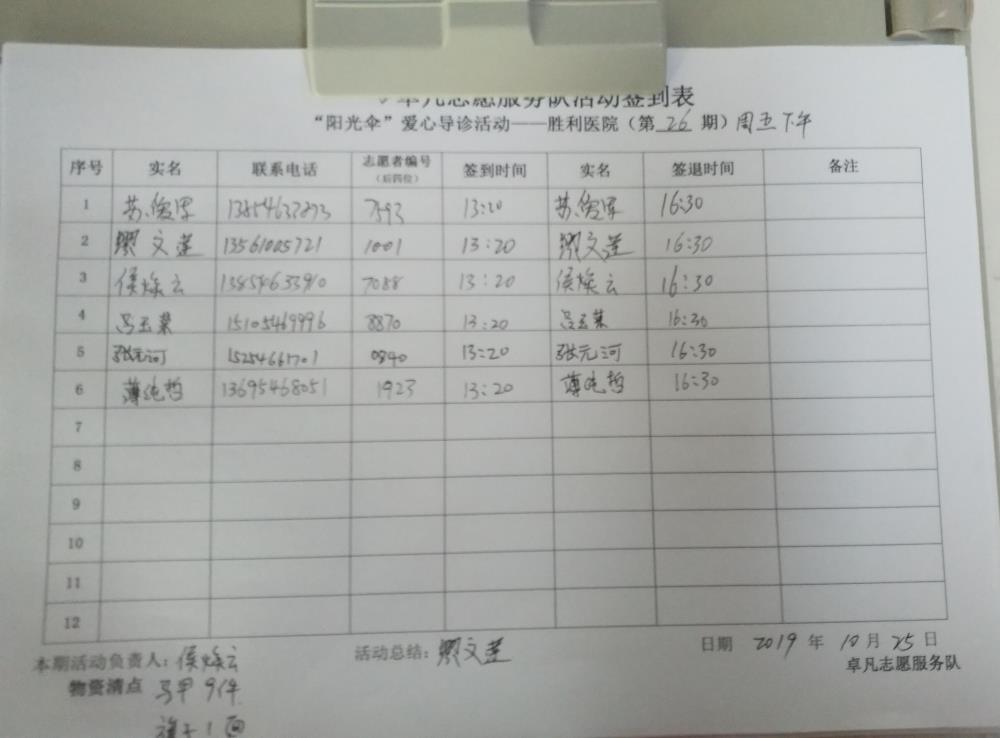 卓凡志愿服务队活动签到表
“阳光伞”爱心导诊活动——胜利医院（第 26 期）周五下午
序号 实名 联系电话 志愿者编号（后四位） 签到时间 实名 签退时间 备注
1 苏俊厚 7593 13:20 苏俊厚 16:30
2 文莲 13561005721 1001 13:20 文莲 16:30
3 侯焕云 7088 13:20 侯焕云 16:30
4 吕玉荣 15105469996 8870 13:20 吕玉荣 16:30
5 张元河 15254661701 0840 13:20 张元河 16:30
6 薄纯哲 13695468051 1923 13:20 薄纯哲 16:30
7
8
9
10
11
12
本期活动负责人：侯焕云 活动总结：文莲 日期 2019 年 10 月 25 日
卓凡志愿服务队
物资清点 马甲 9件
旗子 1 面